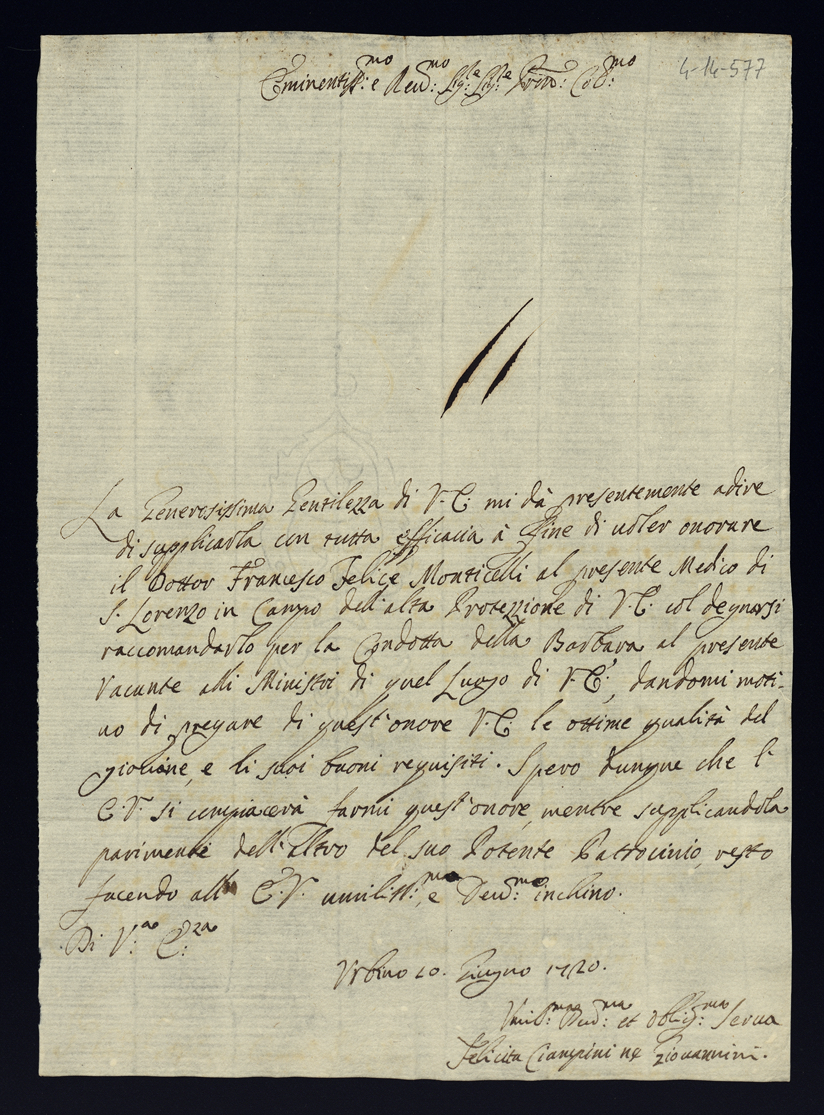 Eminentiss:mo e Reu:mo Sig:re Sig:re Pron: Col:mo
4-14-577
La Generosissima Gentilezza di V.E. mi dà presentemente adire
di supplicarla con tutta efficacia à ffine di uoler onorare
il Dottor Francesco Felice Monticelli al presente Medico di
S. Lorenzo in Campo dell'alta Protezzione di V.E. col degnarsi
raccomandarlo per la Condotta della Barbara al presente
Vacante alli Ministri di quel Luogo di V.E., dandomi moti-
uo di pregare di quest'onore V.E. le ottime qualità del
giouane, e li suoi buoni requisiti. Spero dunque che l'
E.V. si compiacerà farmi quest'onore, mentre supplicandola
parimente dell'Altro del suo Potente Patrocinio, resto
facendo all' E.V. umiliss:mo, e Deuo:mo inchino.
Di V:a E:za
Vrbino 10. Giugno 1720.
Vmil:ma Deuo:ma et Oblig:ma Serua
Felicita Ciampini ne Giouannini.